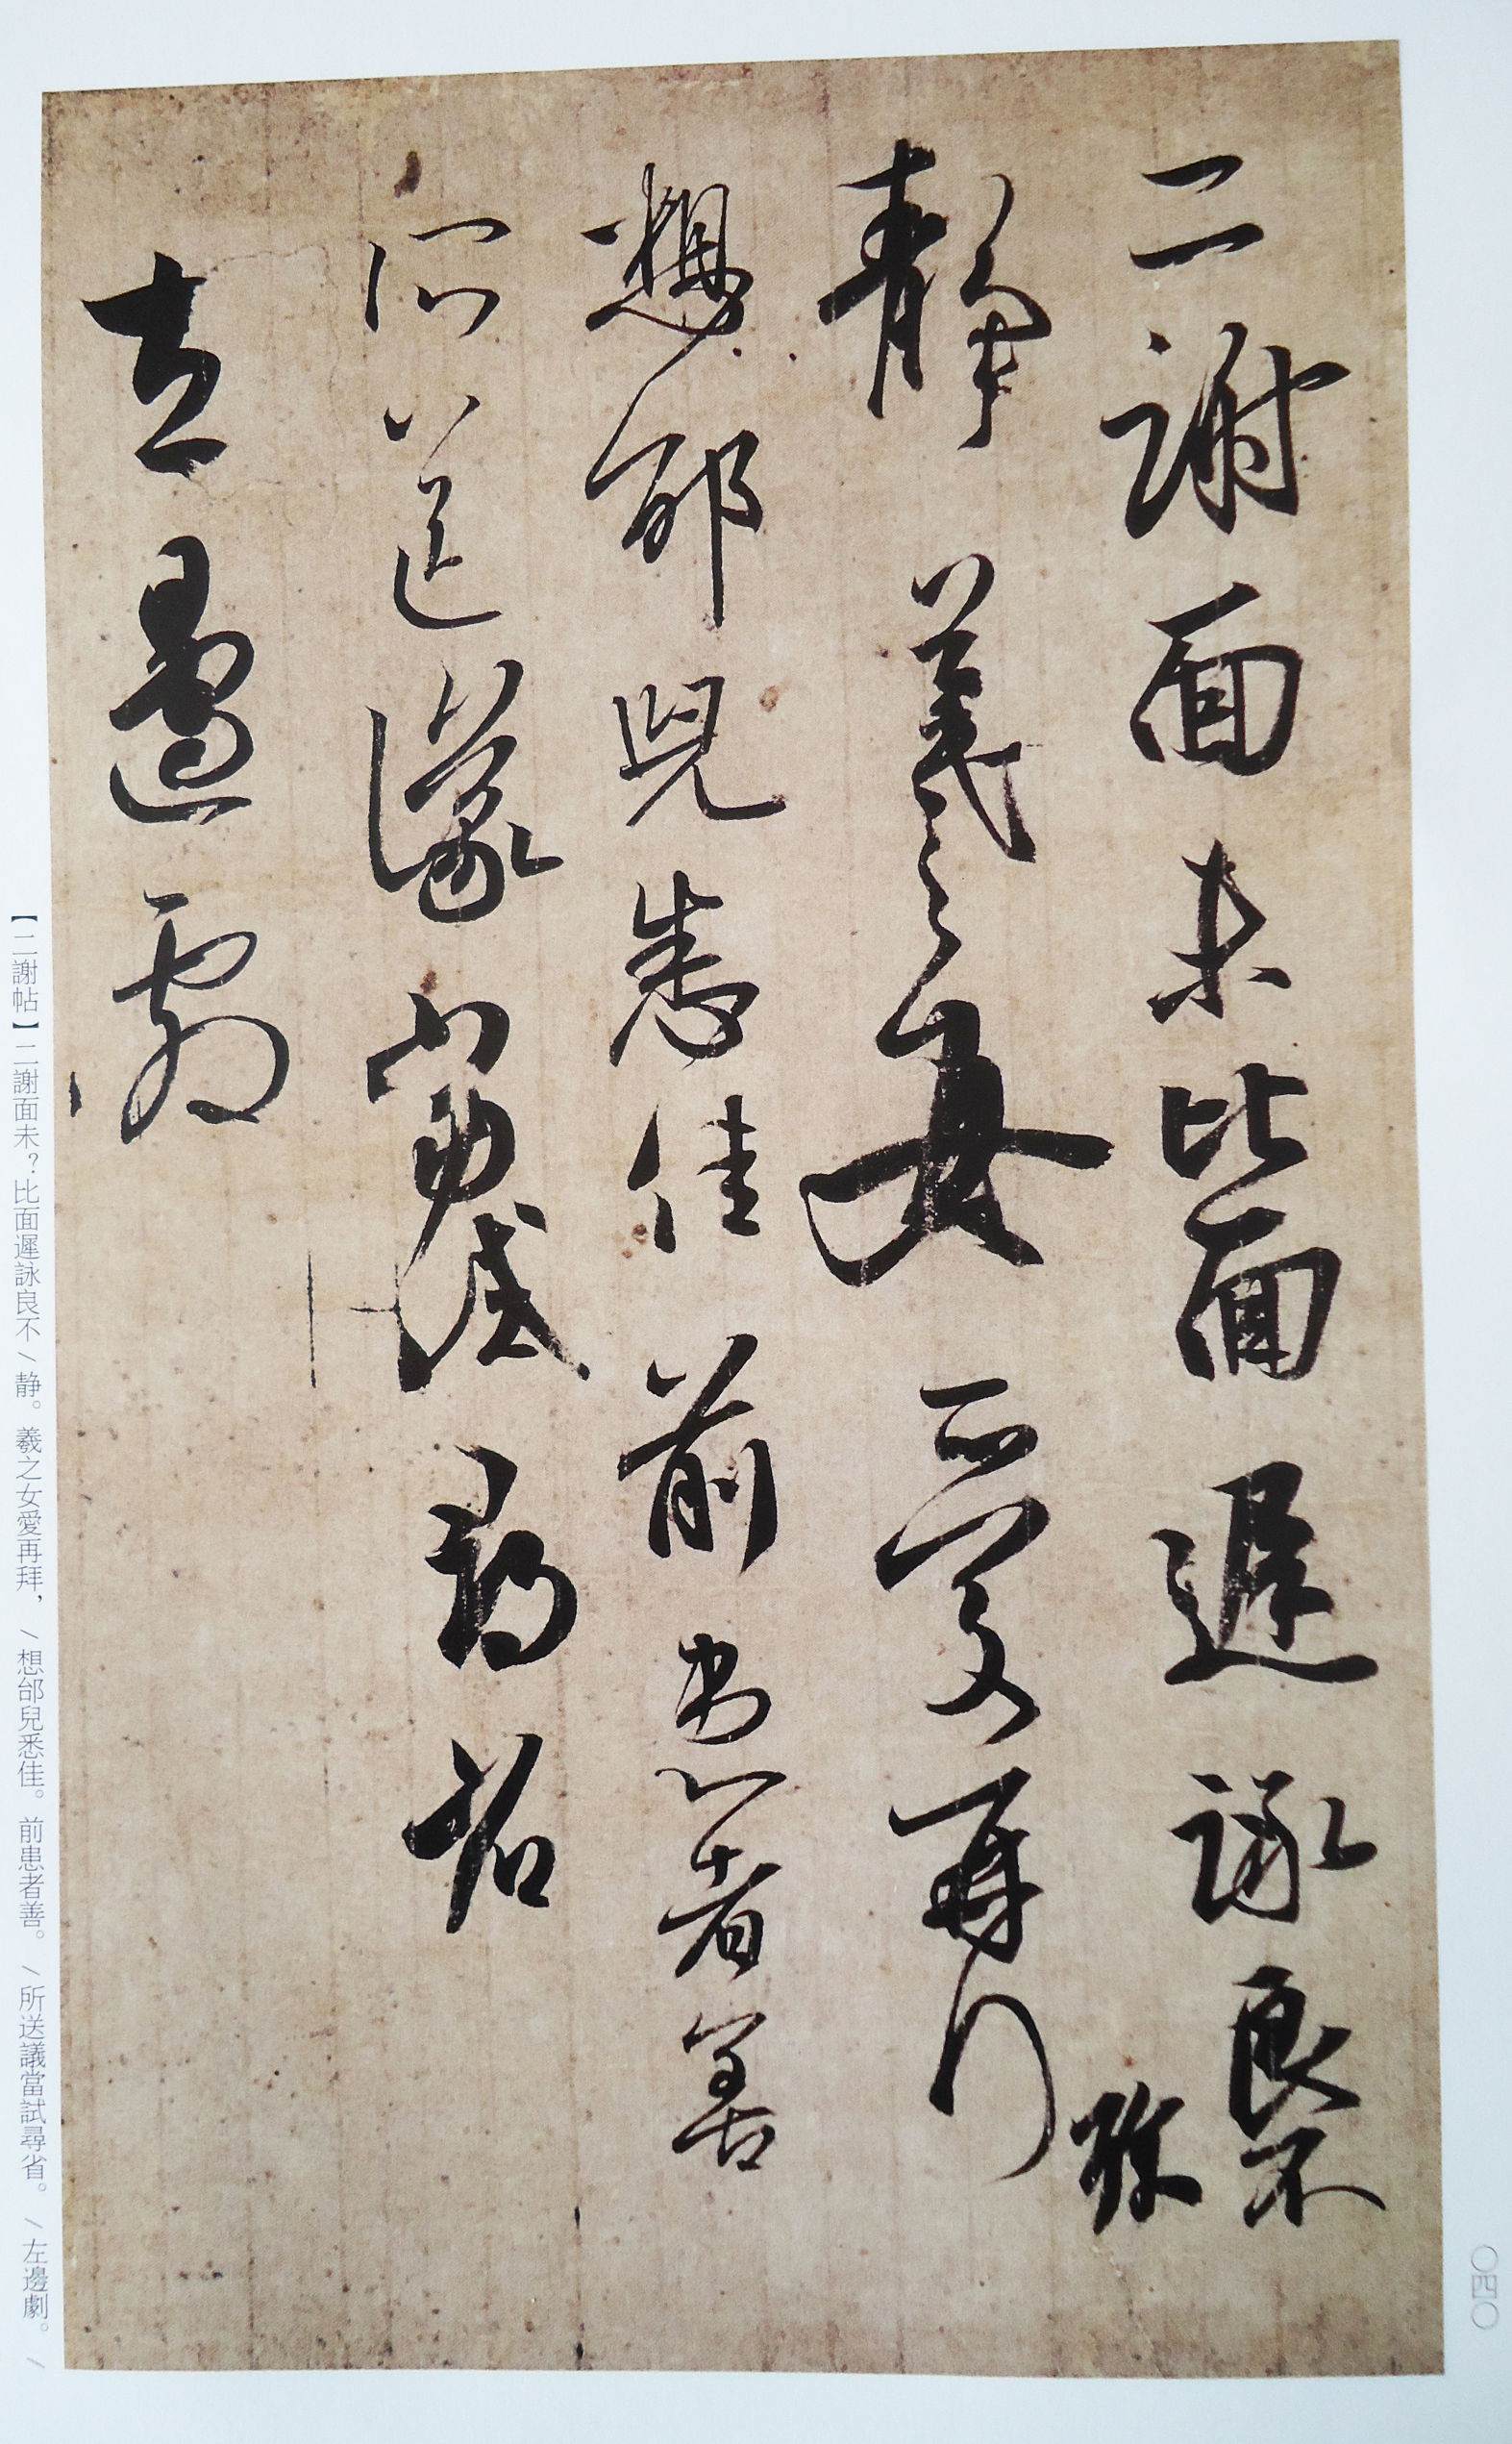 二謝面未比面遲詠良不
靜羲之女愛再拜
想邰兒悉佳前患者善
所送議當試尋省
左邊劇
【二謝帖】二謝面未？比面遲詠良不/静。羲之女愛再拜，/想邰兒悉佳。前患者善。/所送議當試尋省。/左邊劇。/
〇四〇